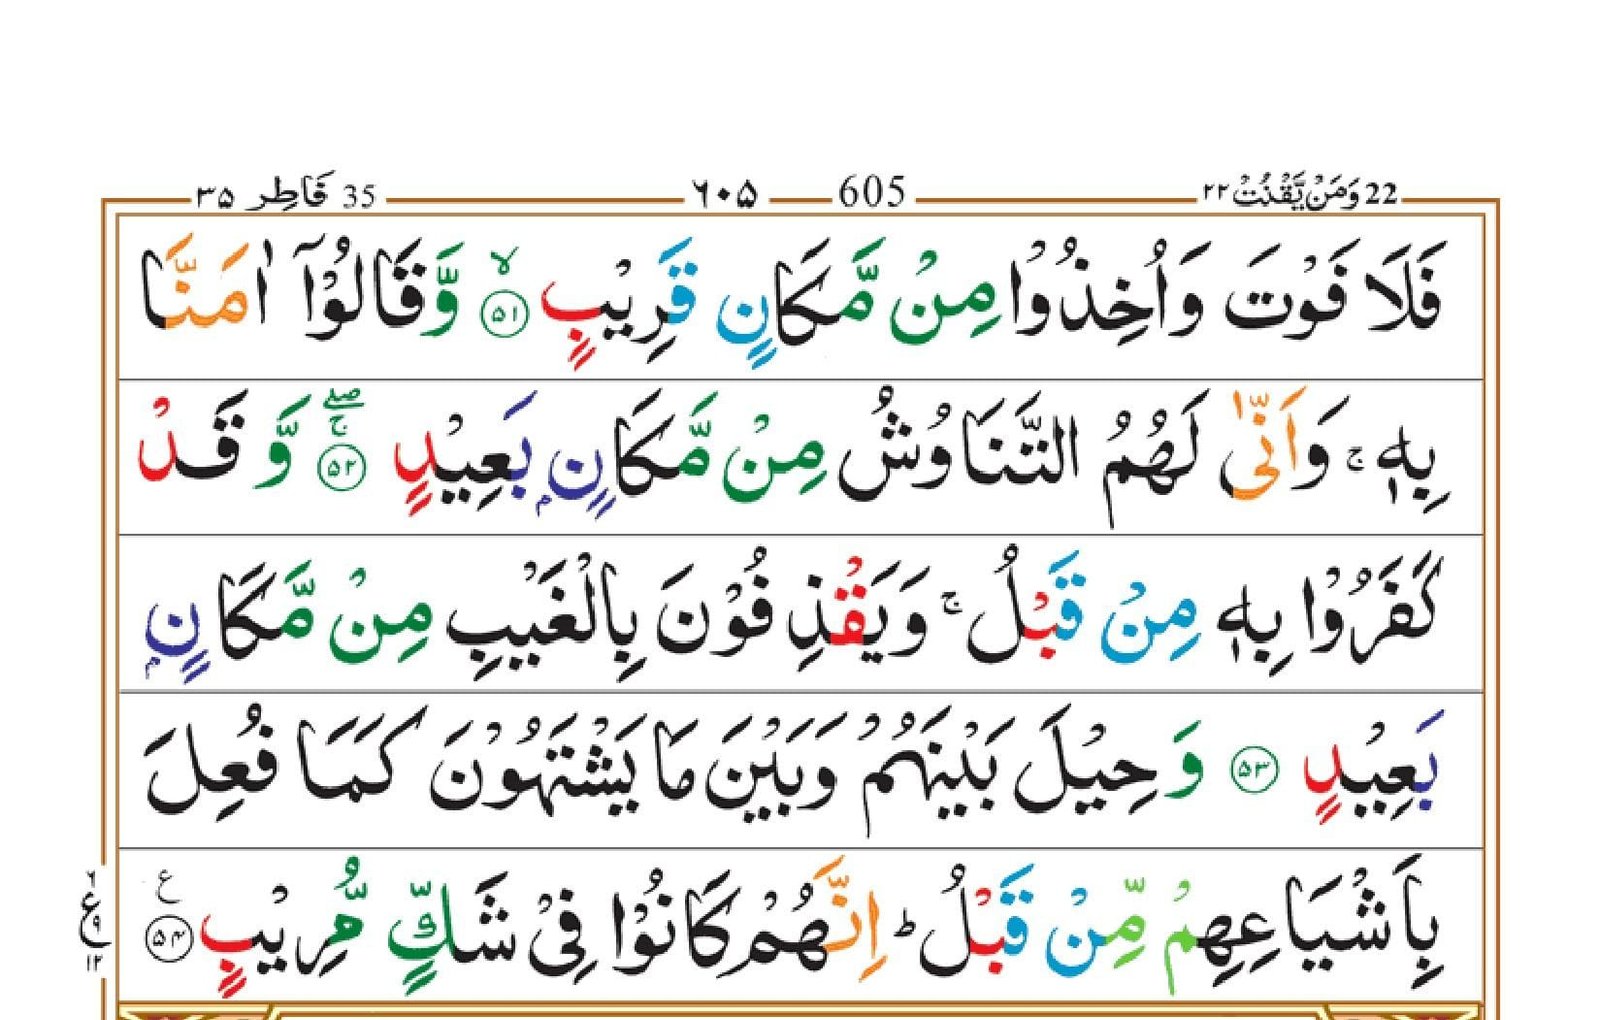 22 وَمَنْ يَّقْنُتْ ٢٢ 605 ٦٠٥ 35 فَاطِر ٣٥
فَلَا فَوْتَ وَاُخِذُوْا مِنْ مَّكَانٍ قَرِيْبٍ ۙ‏ ﴿۵۱﴾ وَّقَالُوْۤا اٰمَنَّا
بِهٖ ۚ وَاَنّٰى لَهُمُ التَّنَاوُشُ مِنْ مَّكَانٍۭ بَعِيْدٍ ۖۚ ﴿۵۲﴾ وَّ قَدْ
كَفَرُوْا بِهٖ مِنْ قَبْلُ ۚ وَيَقْذِفُوْنَ بِالْغَيْبِ مِنْ مَّكَانٍۭ
بَعِيْدٍ ﴿۵۳﴾ وَحِيْلَ بَيْنَهُمْ وَبَيْنَ مَا يَشْتَهُوْنَ كَمَا فُعِلَ
بِاَشْيَاعِهِمْ مِّنْ قَبْلُ ؕ اِنَّهُمْ كَانُوْا فِىْ شَكٍّ مُّرِيْبٍ ﴿۵۴﴾ ع
٦
ع
٩
١٢